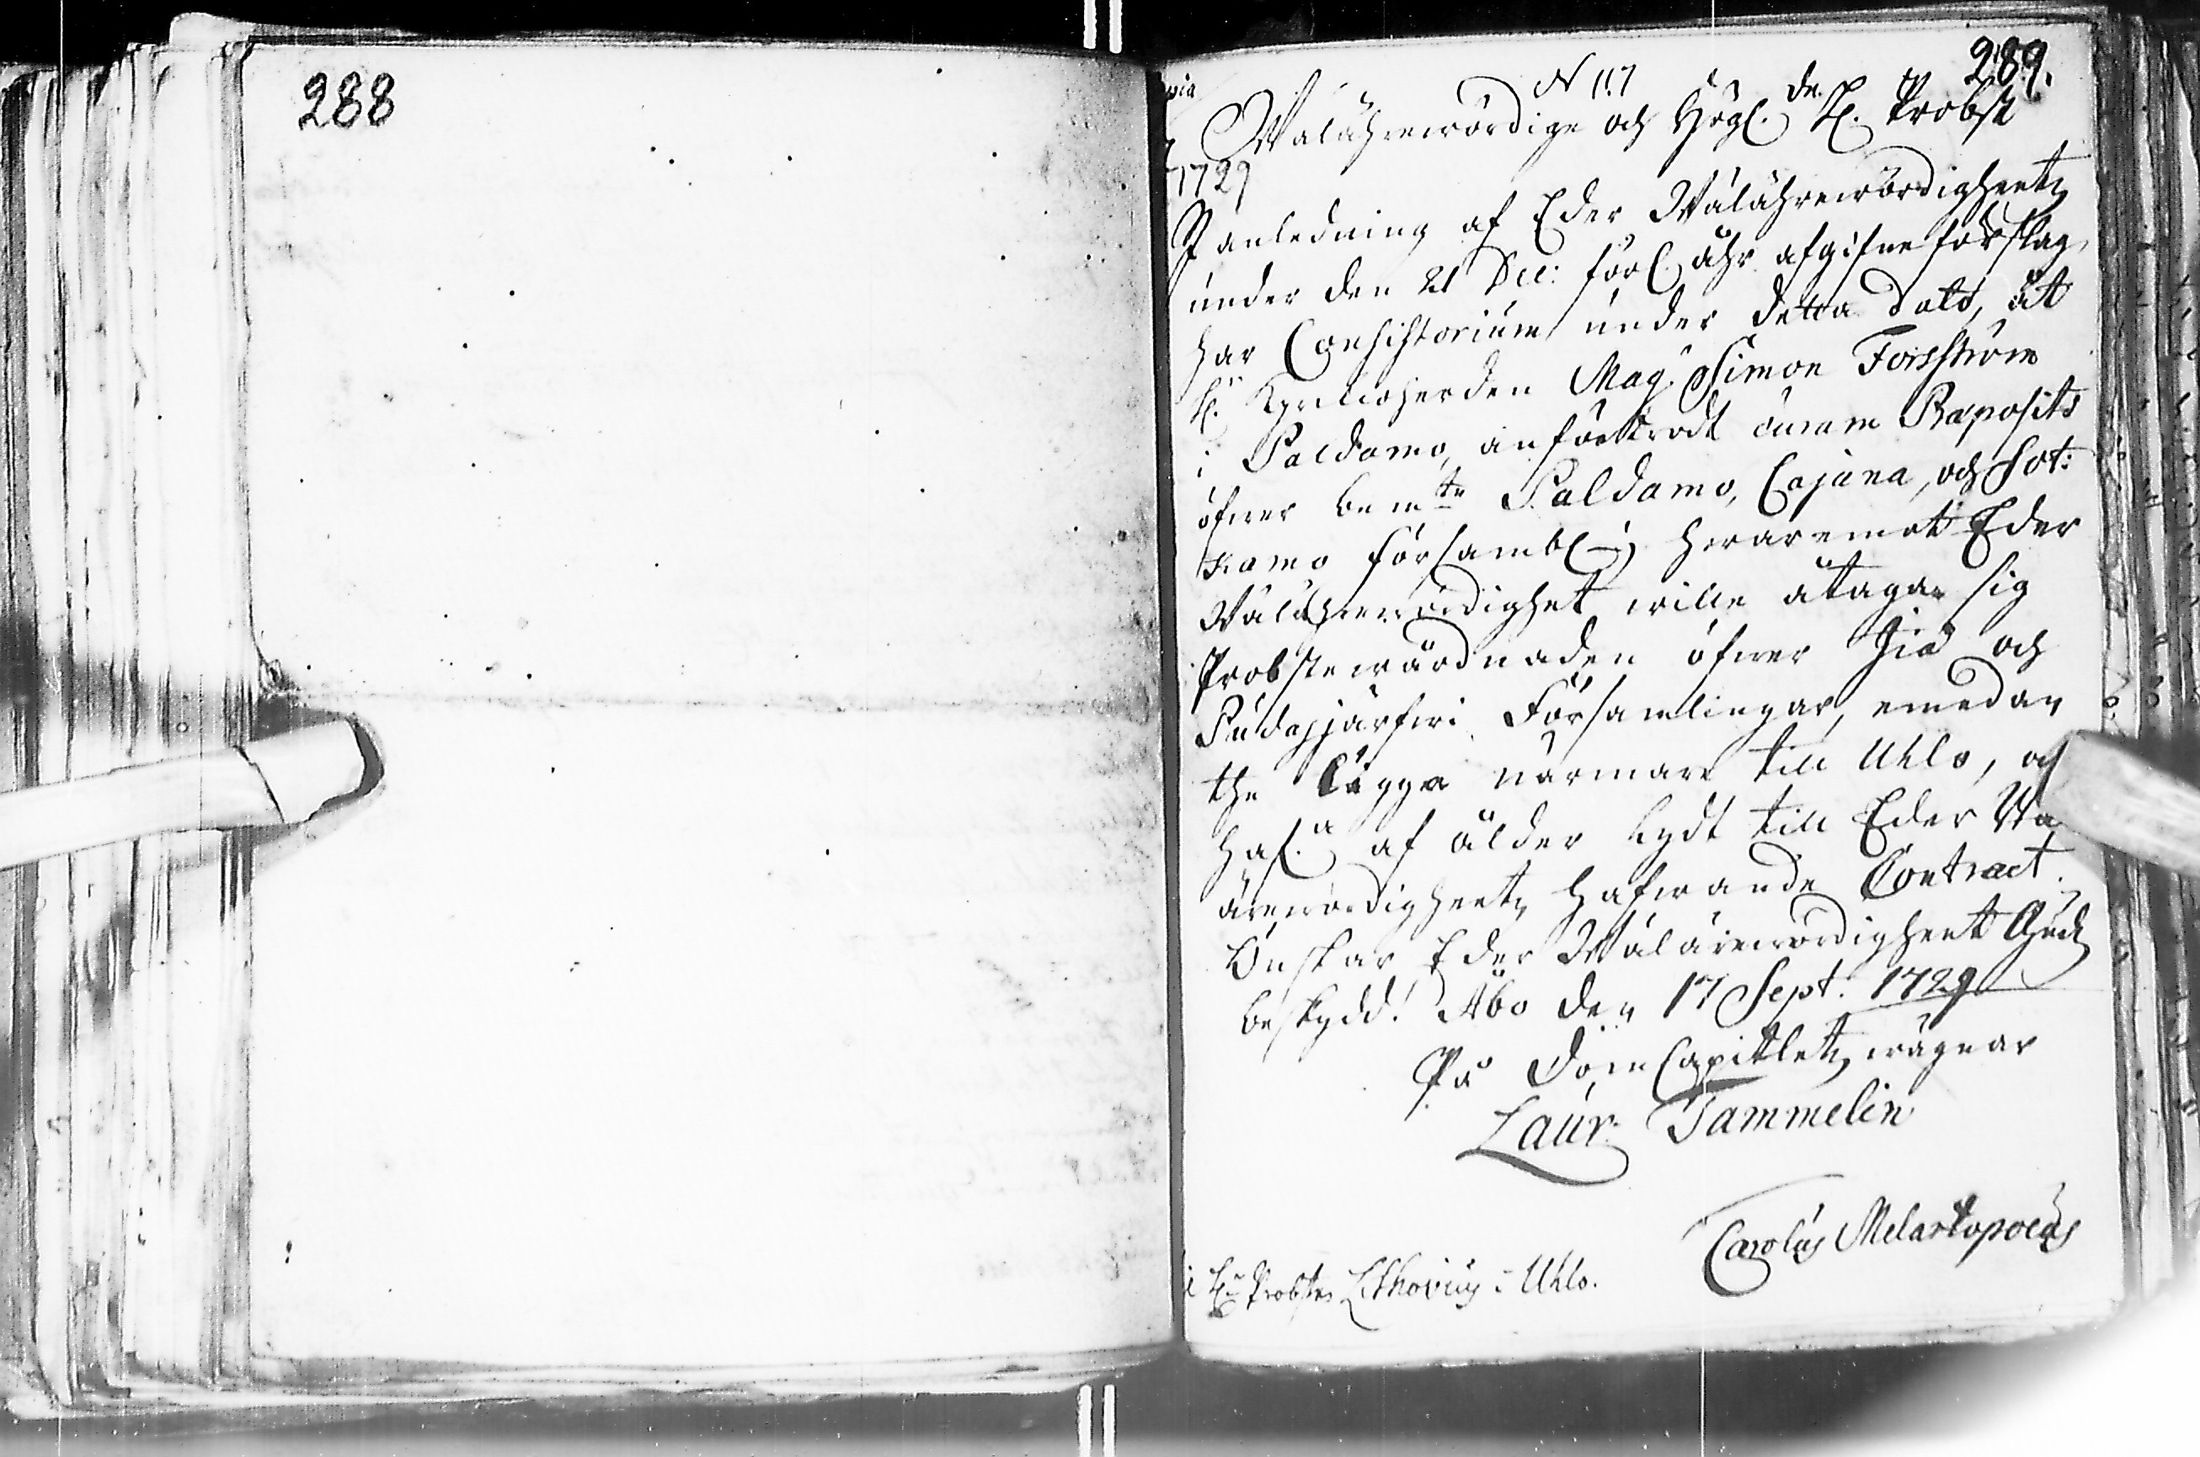 288
289.
N 117
Wälährewördige och Högl. de H. Probst
1729
I anledning af Eder Wälährewördigheetz
under den 21 Dec: förl. åhr afgifne förslag,
har Consistorium under detta dato, åt
H. Kyrkioherden Mag. Simon Forsström
i Paldamo, anförtrodt curam Præpositi
öfwer bemte Paldamo, Cajana, och Sot:
kamo försambl. hwaremot Eder
Wälährewördighet wille åtaga sig
Probstewårdnaden öfwer Jio och
Pudasjärfwi Församlingar, emedan
the liggia närmare till Uhlo, och
haf.a af ålder lydt till Eder Wä
ärewördigheetz hafwande Contract.
Önskar Eder Wälärewördigheet Gudz
beskydd! Åbo den 17 Sept. 1729
På DomCapitletz wägnar
Laur. Tammelin
Carolus Melartopoeus
H. Probsten Lithovius i Uhlo.